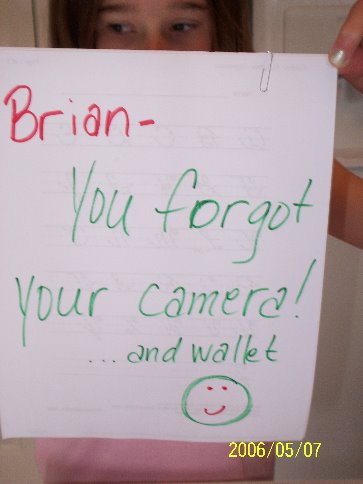 Brian-
You forgot
your camera!
...and wallet
2006/05/07